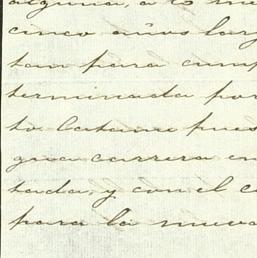 alguna, a lo me
cinco años lar
tan para cump
terminada por
to pues
gua carrera en
tada, y con el c
para la nueva